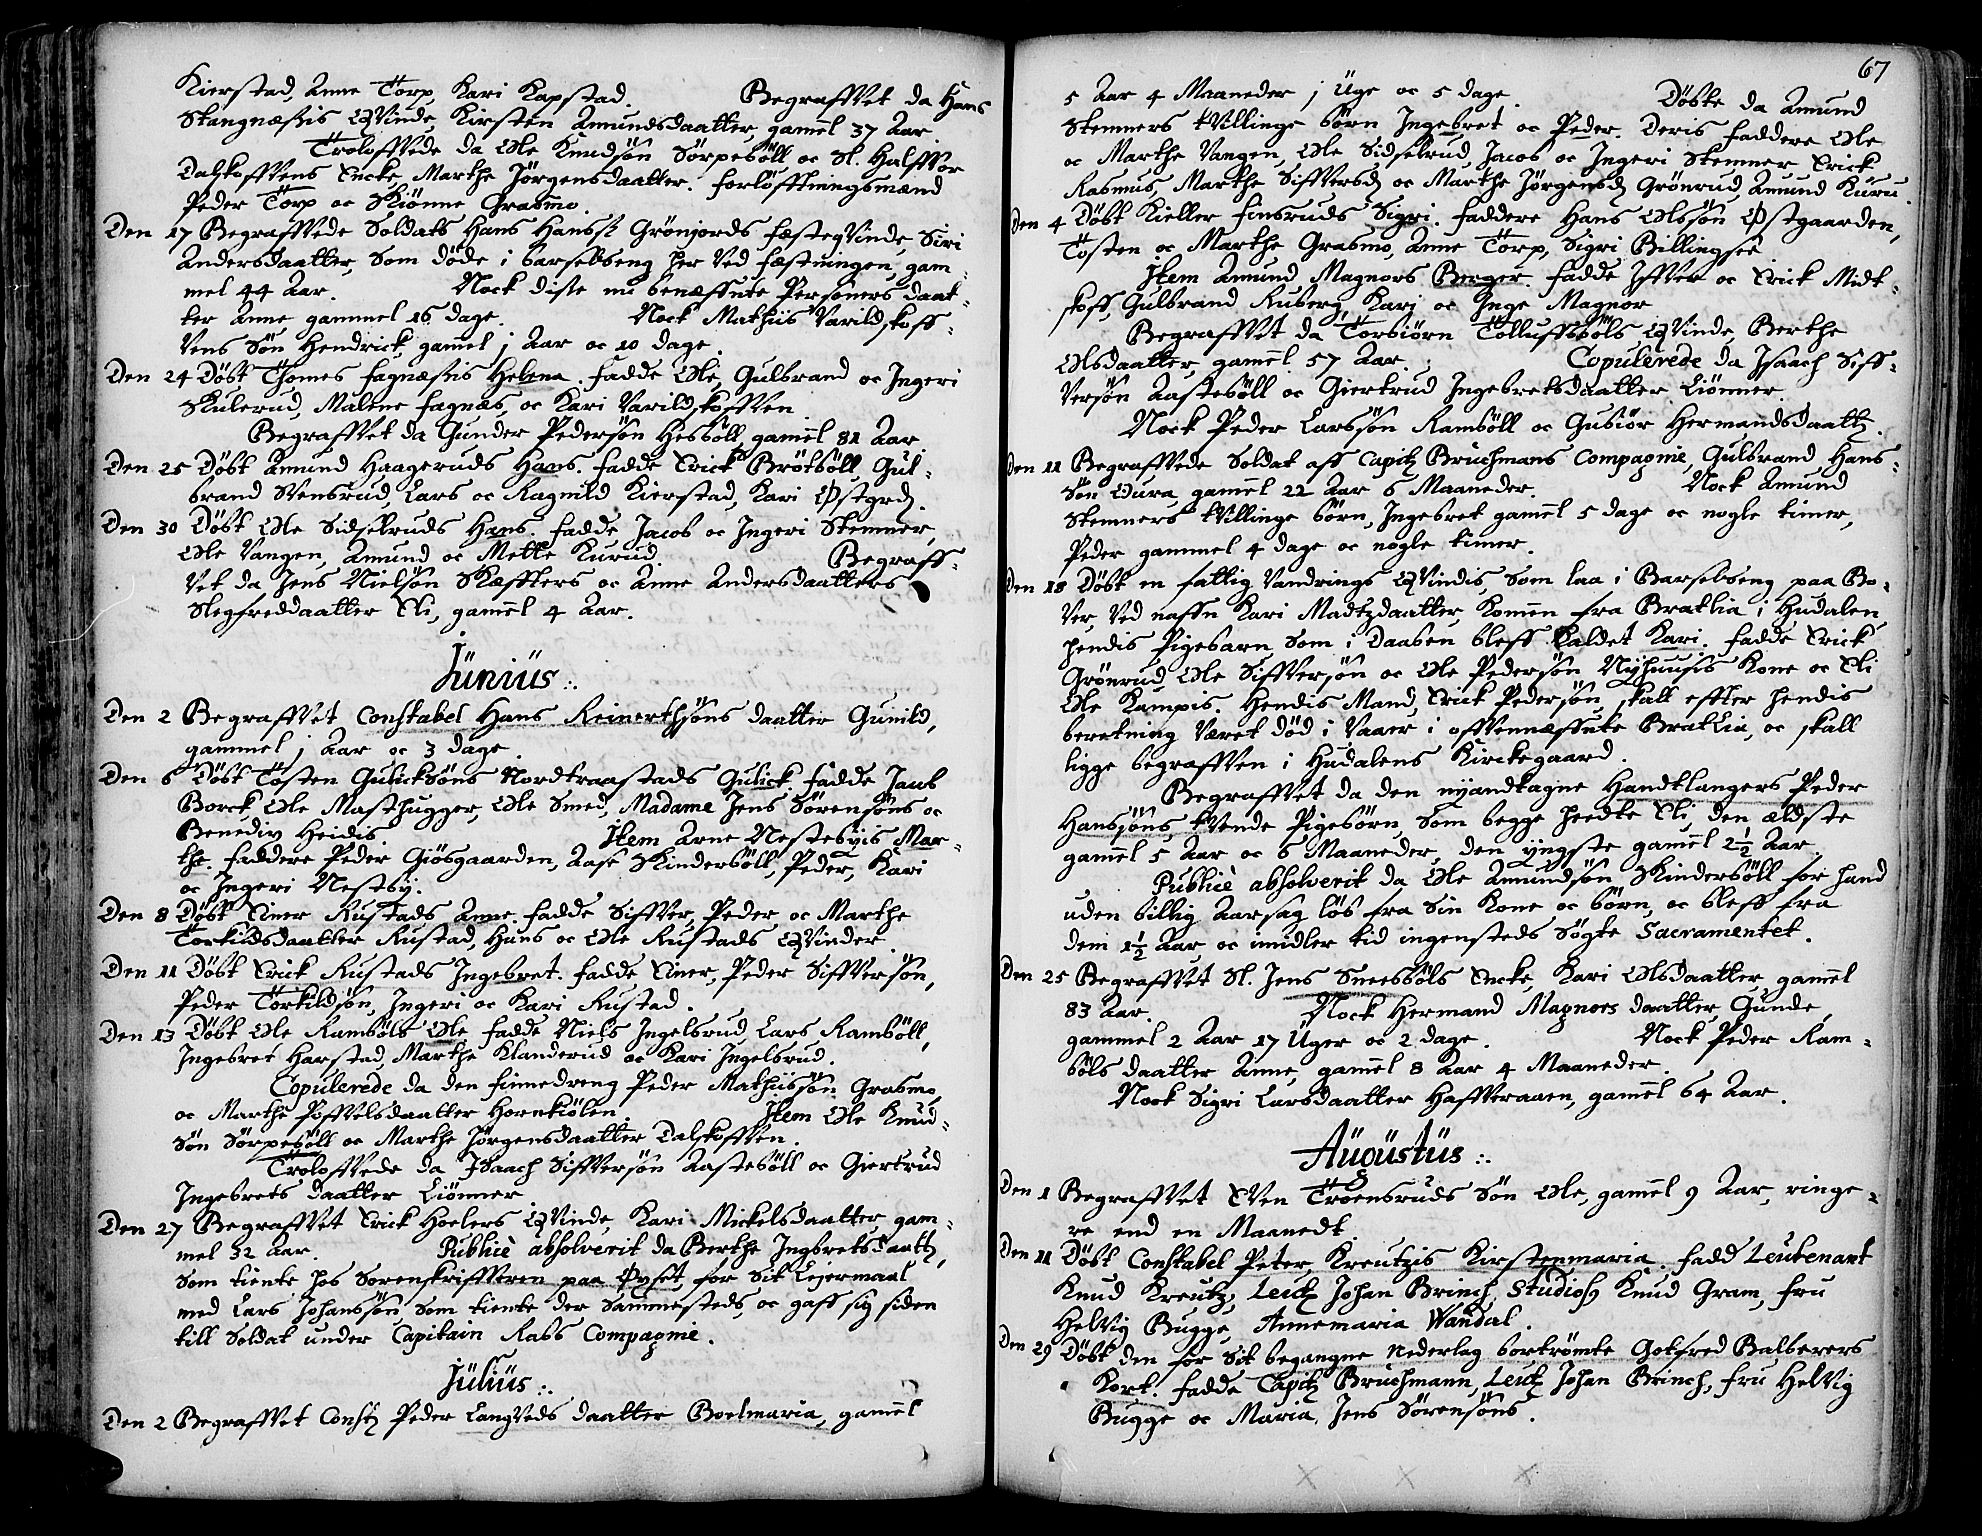 Kierstad, Anne Torp, Kari Kapstad. Begraffvet da Hans
Stangnæssis Qvinde, Kirsten Amundsdaatter, gamel 37 Aar
Troloffvede da Ole Knudsøn Sørpebøll oc Sl. Halffvor
Dalskoffvens Encke, Marthe Jørgensdaatter. forløfftningsmænd
Peder Torp oc Skiønne Grasmo.
Den 17 Begraffvede Soldats Hans Hanss: Grønjords festeqvinde, Siri
Andersdaatter, som døde i barselseng her ved festningen, gam-
mel 44 Aar. Nock diste nu benæffnte Personers daat-
ter Anne gammel 16 dage. Nock Mathiis Varildskoff-
vens Søn Hendrick, gamel j Aar oc 10 dage.
Den 24 Døbt Thomes fagnæssis Helena. fadde Ole, Gulbrand oc Ingeri
Skulerud, Malene fagnæs, oc Kari Varildskoffven
Begraffvet da Gunder Pedersøn Hesbøll, gamel 81 Aar
Den 25 Døbt Amund Haageruds Hans. fadde Erick Brøtbøll, Gul-
brand Svensrud, Lars oc Ragnild Kierstad, Kari Østgrd.
Den 30 Døbt Ole Sidselruds Hans. fadde Jacob oc Ingeri Stemner,
Ole Vangen, Amund oc Mette Kurud. Begraff-
vet da Jens Nielsøn Skæffters oc Anne Andersdaatters
Slegfreddaatter Eli, gamel 4 Aar.
Jünius :.
Den 2 Begraffvet Constabel Hans Reinerthsøns daatter Gunild,
gammel j Aar oc 3 dage.
Den 6 Døbt Tosten Gulicksøns Nordtraastads Gulick. fadde Jacob
Borck, Ole Masthugger, Ole Smed, Madame Jens Sørensøns oc
Benedix Heidis Item Arne Nestebyis Mar-
the. faddere Peder Giøsgaarden, Aase Skinderbøll, Peder, Kari
oc Ingeri Nestby.
Den 8 Døbt Einer Rustads Anne. fadde Siffver, Peder oc Marthe
Torkildsdaatter Rustad, Hans oc Ole Rustads Qvinder.
Den 11 Døbt Erick Rustads Ingebret. fadde Einer, Peder Siffversøn,
Peder Torkildsøn, Ingeri oc Kari Rustad.
Den 13 Døbt Ole Rambøls Ole. fadde Niels Ingelsrud, Lars Rambøll,
Ingebret Harstad, Marthe Klanderud oc Kari Ingelsrud.
Copulerede da den finnedreng Peder Mathiissøn Grasmo,
oc Marthe Poffvelsdaatter Hornkiølen. Item Ole Knud-
søn Sørpebøll oc Marthe Jørgensdaatter Dalskoffven.
Troloffvede da Isaach Siffversøn Aastebøll oc Giertrud
Ingebrets daatter Liønner
Den 27 Begraffvet Erick Hoelers Qvinde, Kari Mickelsdaatter, gam-
mel 32 Aar. Publicè absolverit da Berthe Ingbretsdaatt,
som tiente hos Sorenskriffveren paa Øyset, for Sit Leyermaal
med Lars Johansøn, som tiente der sammesteds, oc gaff sig siden
till Soldat under Capitain Rass Compagnie.
Jülius :.
Den 2 Begraffvet Const: Peder Langveds daatter Boelmaria, gamel
67
5 Aar 4 Maaneder j Uge oc 5 dage. Døbte da Amund
Stemners tvillinge børn Ingebret oc Peder. Deris faddere Ole
oc Marthe Vangen, Ole Sidselrud, Jacob oc Ingeri Stemner, Erick
Rasmus, Marthe Siffversd oc Marthe Jørgensd Grønrud, Amund Kuru.
Den 4 Døbt Kieller finsruds Sigri. faddere Hans Olssøn Østgaarden,
Tosten oc Marthe Grasmo, Anne Torp, Sigri Billingsee
Item Amund Magnors Berger. fadde Iffver oc Erick Midt-
skoff, Gulbrand Ruberg, Karj oc Inge Magnor
Begraffvet da Torbiørn Tolluffsbøls Qvinde, Berthe
Olsdaatter, gamel 57 Aar. Copulerede da Isaach Siff-
versøn Aastebøll oc Giertrud Ingebretsdaatter Liønner.
Nock Peder Larssøn Rambøll oc Gubiør Hermandsdaatt.
Den 11 Begraffvede Soldat aff Capit: Bruchmans Compagnie, Gulbrand Hans-
søn Oura, gamel 22 Aar 6 Maaneder. Nock Amund
Stemners tvillinge børn, Ingebret gamel 5 dage oc nogle timer,
Peder gammel 4 dage oc nogle timer.
Den 18 Døbt en fattig Vandrings Qvindis, som laa i Barselseng paa Bo-
ver, ved naffn Kari Madtzdaatter, Komen fra Bratlia i Hudalen,
hendis Pigebarn, som i Daaben bleff kaldet Kari. fadde Erick
Grønrud, Ole Siffversøn oc Ole Pedersøn Nyhuusis Kone oc Eli
Ole Kampis. Hendis Mand, Erick Pedersøn, skall effter hendis
beretning været død i Vaaer i offvennæffnte Bratlia, oc skall
ligge begraffven i Hudalens Kirckegaard.
Begraffvet da den nyandtagne Handtlangers Peder
Hansøns tvende Pigebørn, som begge heedte Eli, den ældste
gamel 5 Aar oc 6 Maaneder, den yngste gamel 2½ Aar
Publicè absolverit da Ole Amundsøn Skinderbøll for hand
uden billig Aarsag løb fra Sin Kone oc børn, oc bleff fra
dem 1½ Aar oc imidler tid ingensteds søgte Sacramentet.
Den 25 Begraffvet Sl. Jens Sneesbøls Encke, Kari Olsdaatter, gamel
83 Aar. Nock Hermand Magnors daatter, Gunde,
gammel 2 Aar 17 Uger oc 2 dage. Nock Peder Ram-
bøls daatter Anne, gamel 8 Aar 4 Maaneder.
Nock Sigri Larsdaatter Haffveraaen, gamel 64 Aar.
Augustüs :.
Den 1 Begraffvet Even Troensruds Søn Ole, gamel 9 Aar, ringe-
re end en Maanedt
Den 11 Døbt Constabel Peter Kreutzis Kirstenmaria. fadd Leutenant
Knud Kreutz, Leut: Johan Brinch, Studios Knud Gram, fru
Helvig Bugge, Annemaria Wandal.
Den 29 Døbt den for Sit begangne Nederlag bortrømte Gotfred Balberers
Kort. fadde Capit: Bruchmann, Leut: Johan Brinch, fru Helvig
Bugge oc Maria Jens Sørensøns.